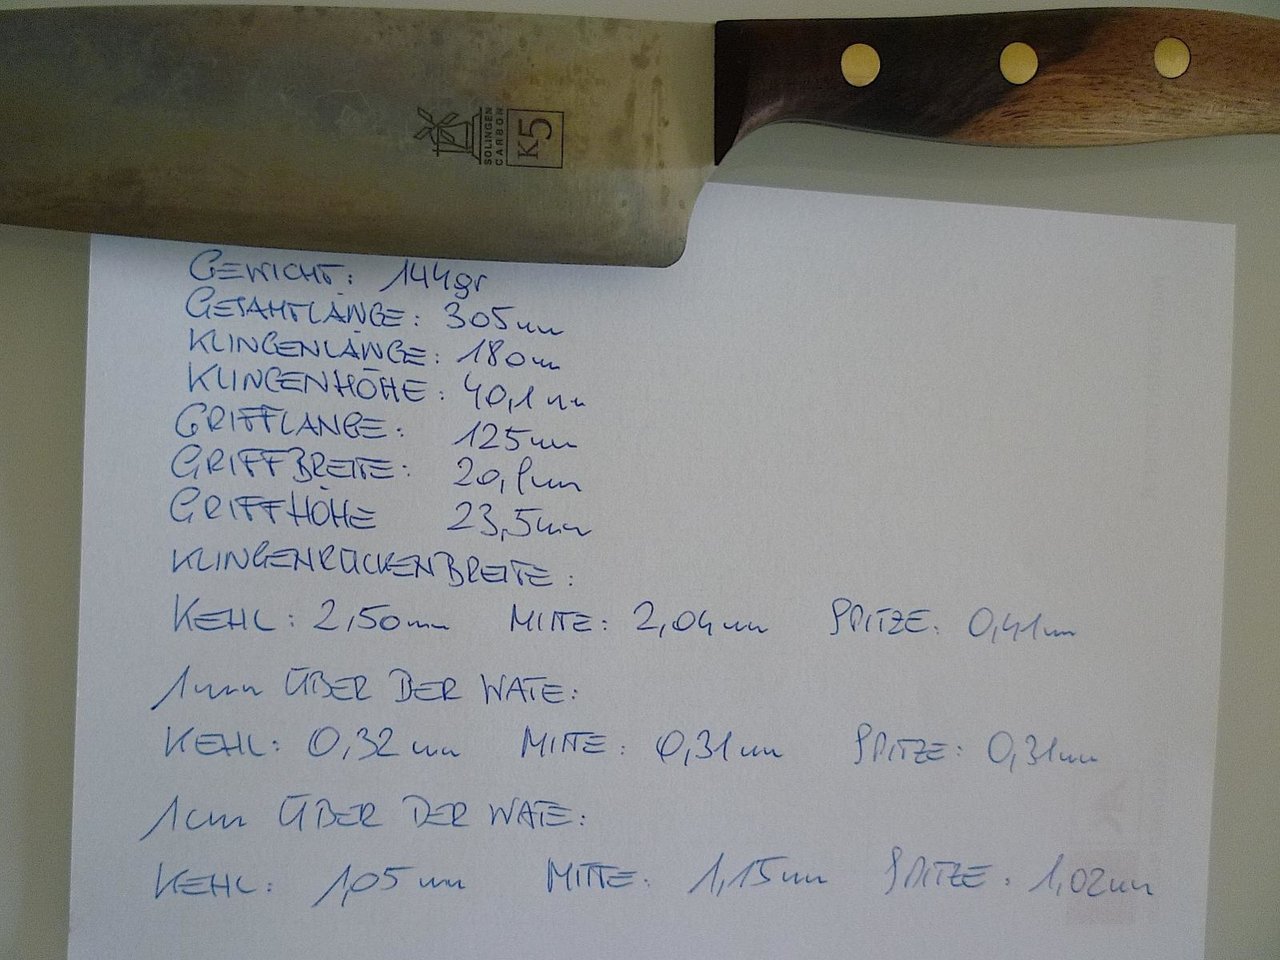 SOLINGEN
CARBON
K5
GEWICHT: 144gr
GESAMTLÄNGE: 305mm
KLINGENLÄNGE: 180mm
KLINGENHÖHE: 40,1mm
GRIFFLÄNGE: 125mm
GRIFFBREITE: 20,1mm
GRIFFHÖHE 23,5mm
KLINGENRÜCKENBREITE:
KEHL: 2,50mm MITTE: 2,04mm SPITZE: 0,41mm
1mm ÜBER DER WATE:
KEHL: 0,32mm MITTE: 0,31mm SPITZE: 0,31mm
1cm ÜBER DER WATE:
KEHL: 1,05mm MITTE: 1,15mm SPITZE: 1,02mm